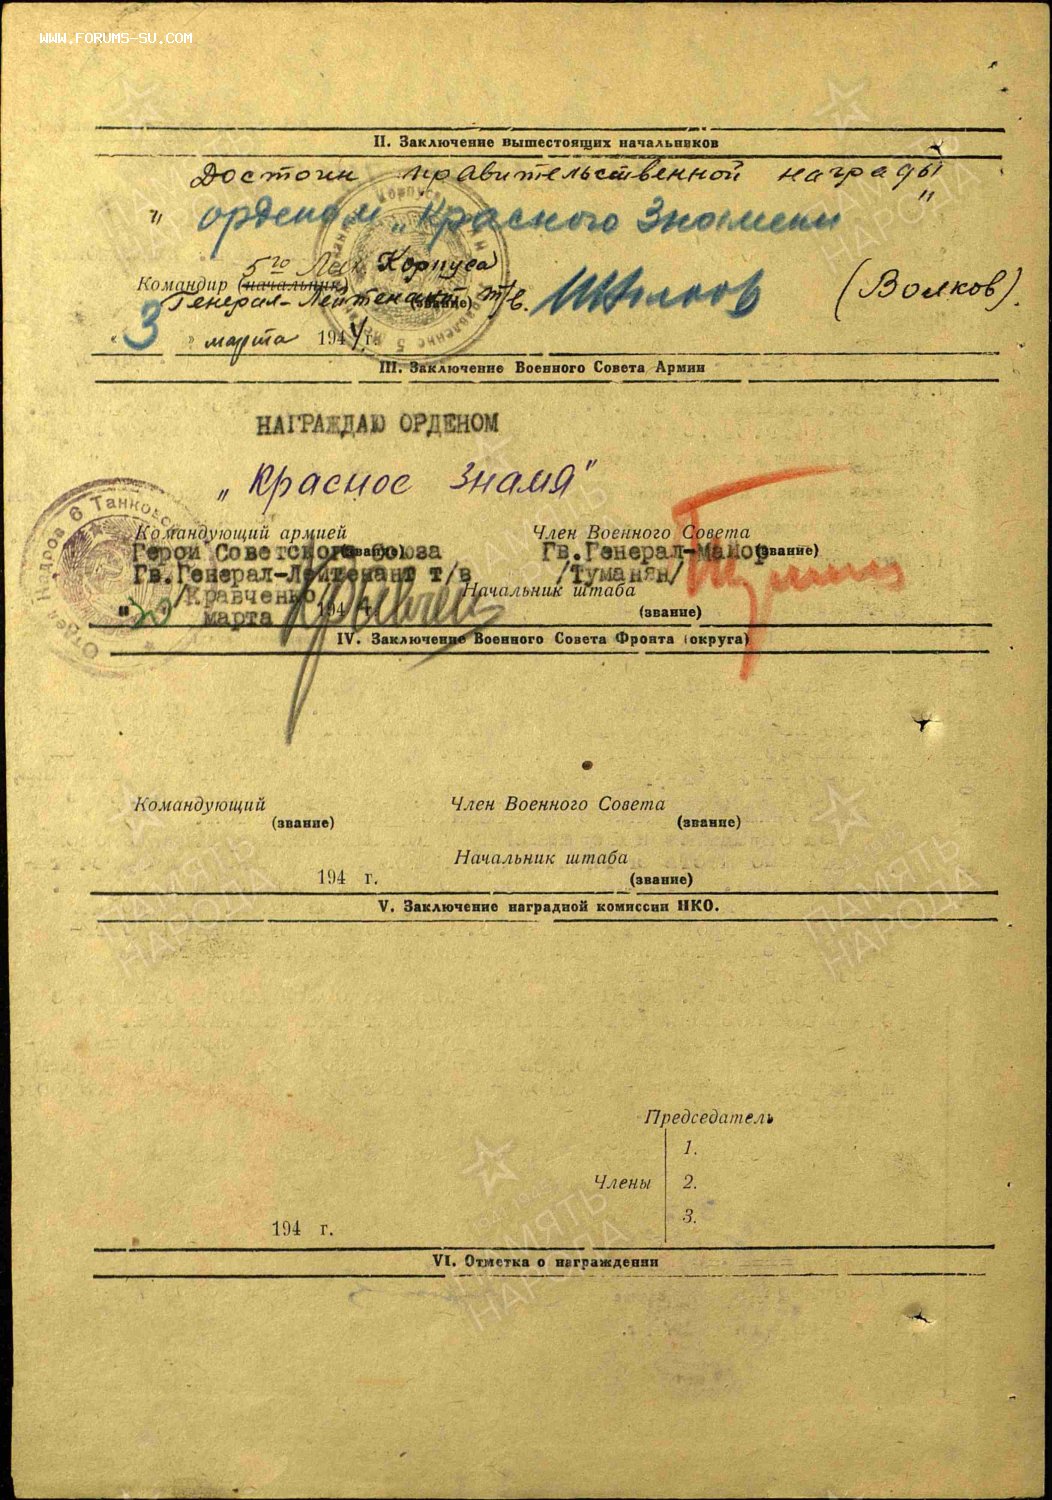 WWW.FORUMS-SU.COM
II. Заключение вышестоящих начальников
Достоин правительственной награды
" орденом „Красного Знамени "
5го Мех. Корпуса
Командир (начальник)
Генерал-Лейтенант т/в. (звание) (Волков).
"3" марта 1944 г.
III. Заключение Военного Совета Армии
НАГРАЖДАЮ ОРДЕНОМ
„Красное Знамя"
Отдел Кадров 6 Танковой
Командующий армией Член Военного Совета
Герой Советского Союза (звание) Гв.Генерал-Майор (звание)
Гв.Генерал-Лейтенант т/в /Туманян/
/Кравченко/ Начальник штаба
марта 1944 г. (звание)
IV. Заключение Военного Совета Фронта (округа)
Командующий Член Военного Совета
(звание) (звание)
Начальник штаба
194 г. (звание)
V. Заключение наградной комиссии НКО.
Председатель
1.
Члены 2.
3.
194 г.
VI. Отметка о награждении
ПАМЯТЬ НАРОДА
ПАМЯТЬ НАРОДА
ПАМЯТЬ НАРОДА
ПАМЯТЬ НАРОДА
ПАМЯТЬ НАРОДА
ПАМЯТЬ НАРОДА